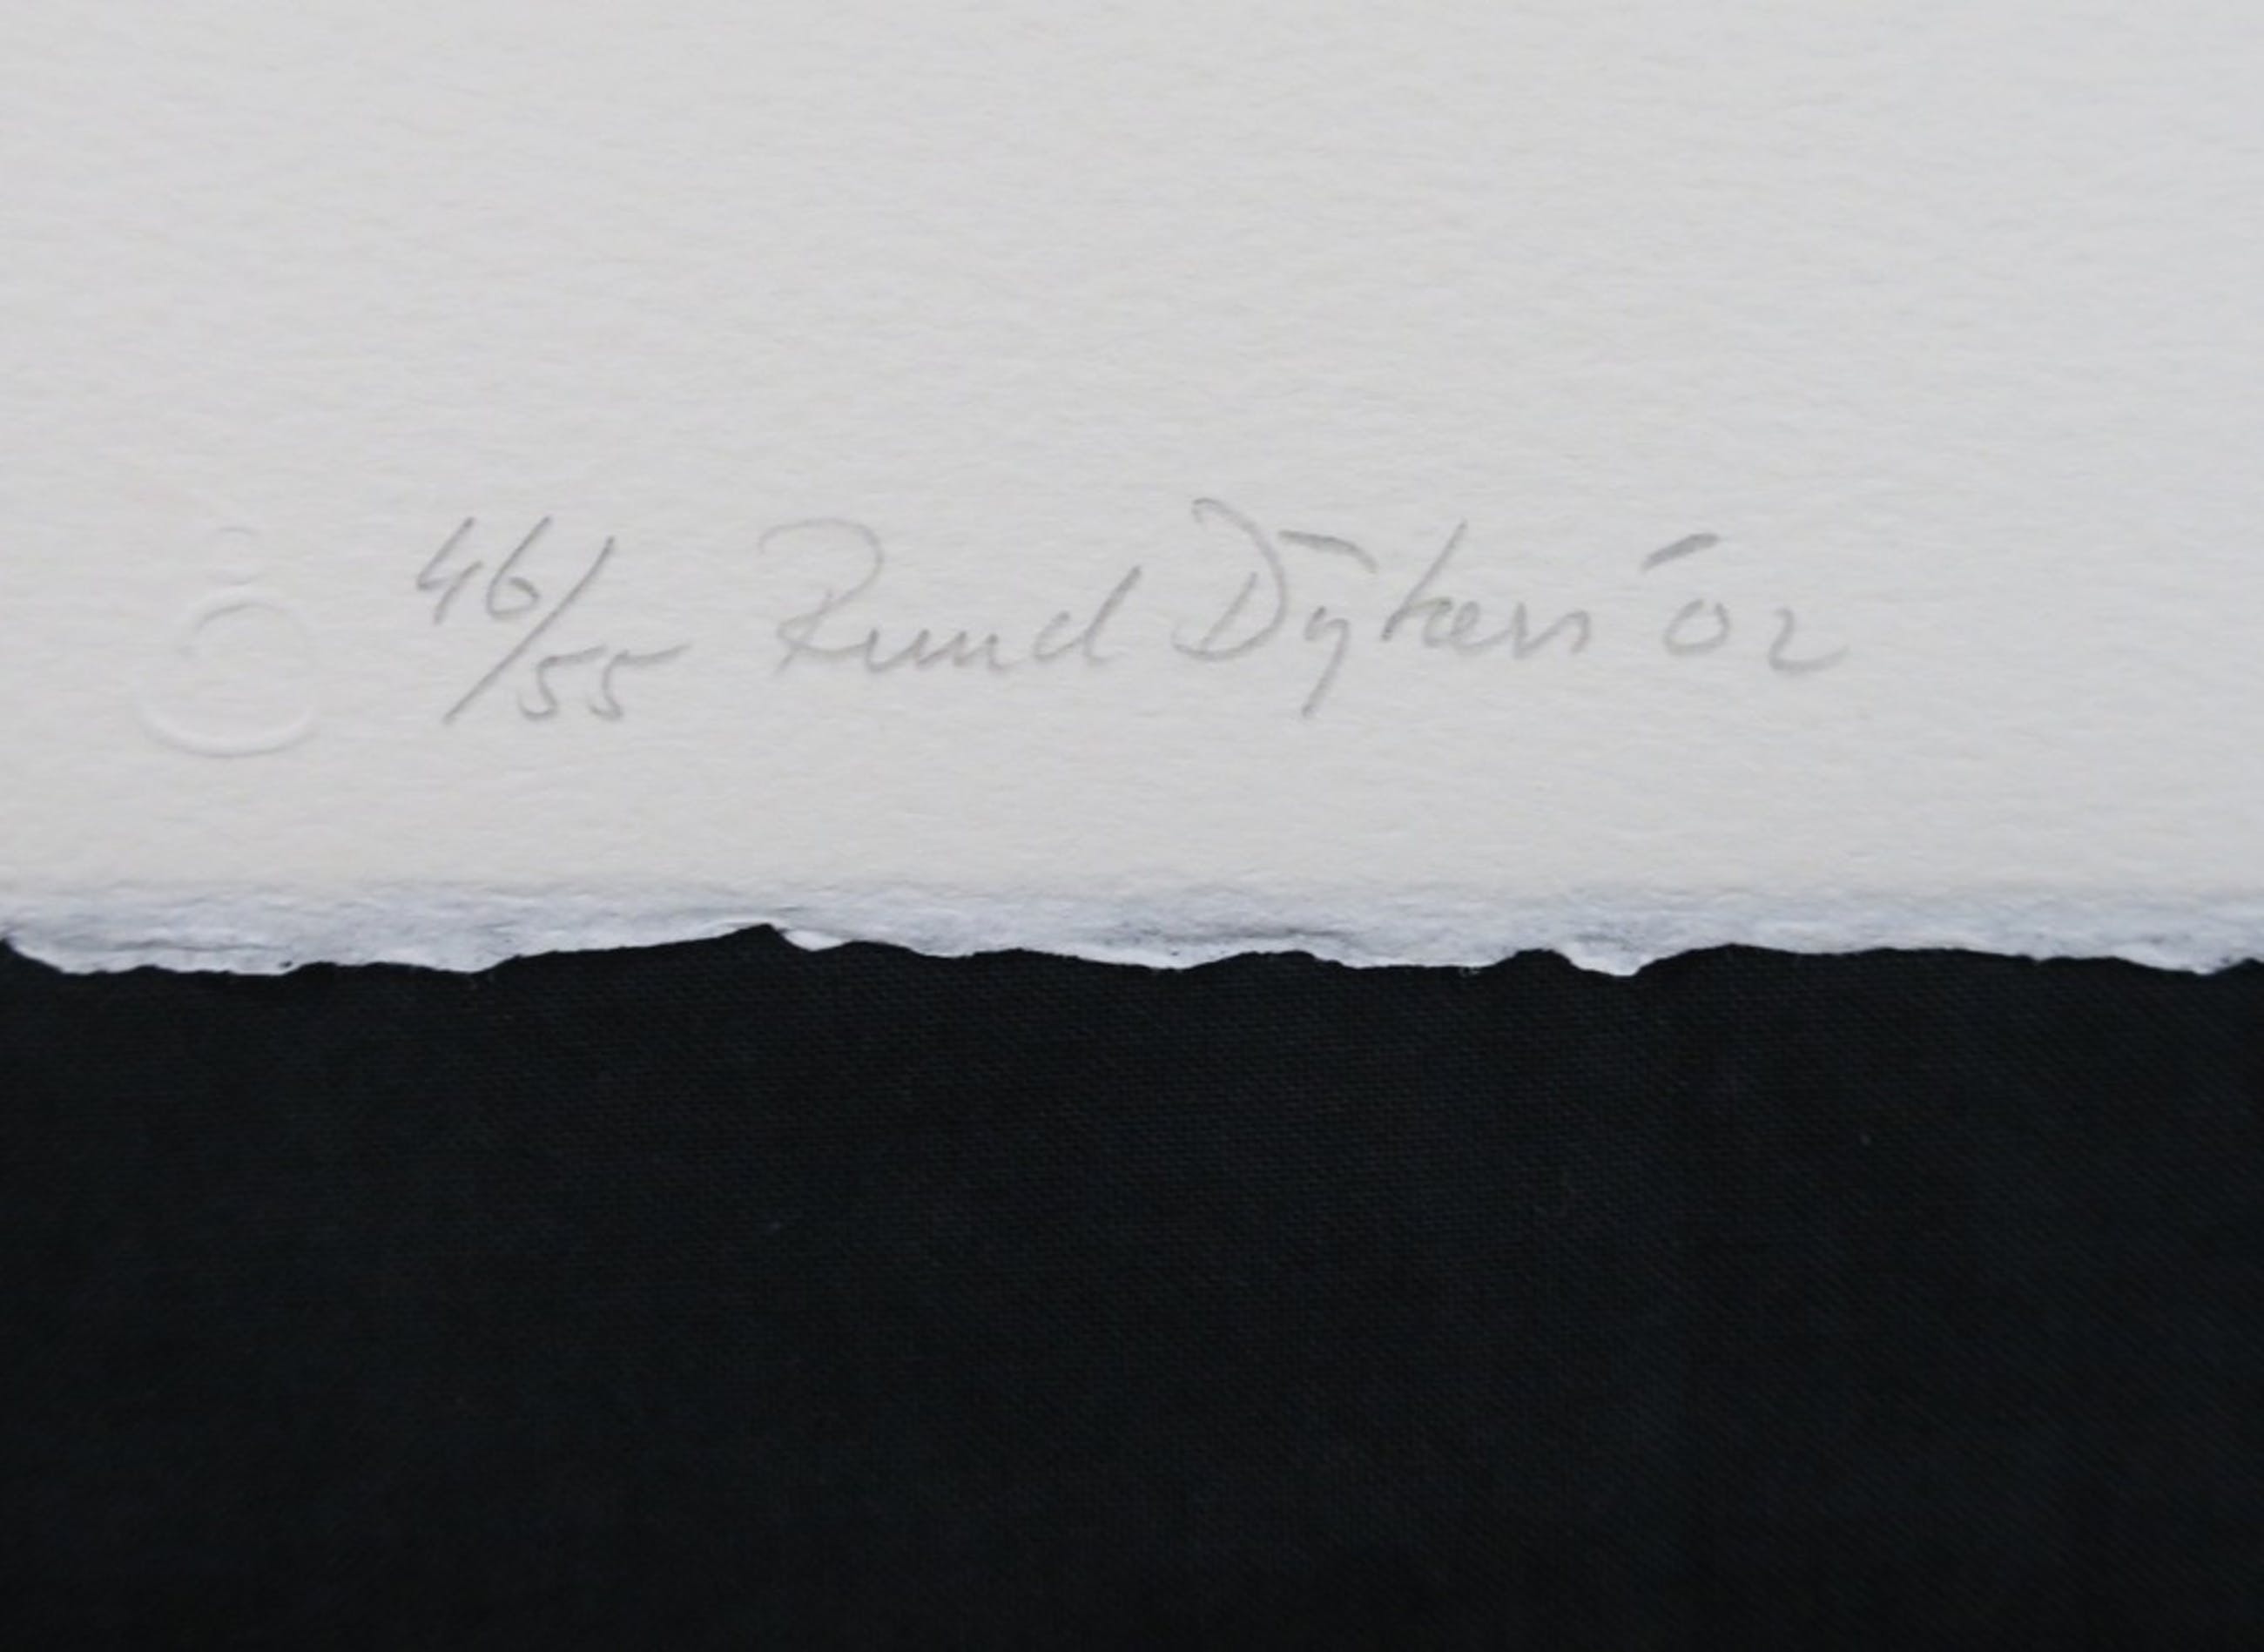 46/55 Ruud Dijkers '02